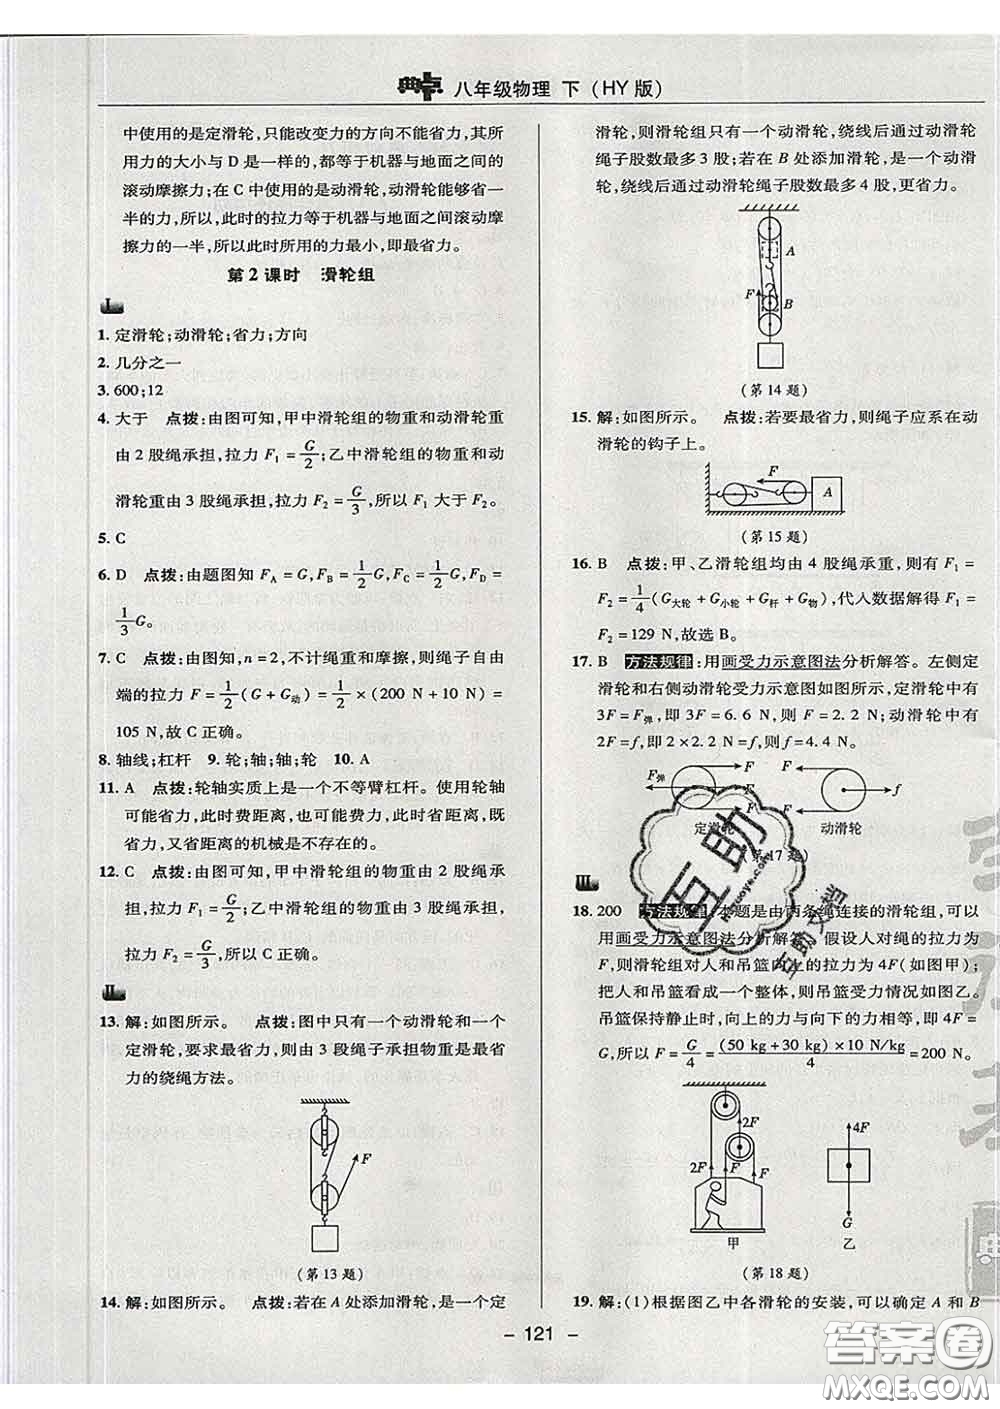 典点 八年级物理 下 (HY 版)
中使用的是定滑轮,只能改变力的方向不能省力,其所
用力的大小与 D 是一样的,都等于机器与地面之间的
滚动摩擦力;在 C 中使用的是动滑轮,动滑轮能够省一
半的力,所以,此时的拉力等于机器与地面之间滚动摩
擦力的一半,所以此时所用的力最小,即最省力。
第 2 课时 滑轮组
Ⅰ
1. 定滑轮;动滑轮;省力;方向
2. 几分之一
3. 600;12
4. 大于 点拨:由图可知,甲中滑轮组的物重和动滑轮重
由 2 股绳承担,拉力 F₁ = G/2;乙中滑轮组的物重和动
滑轮重由 3 股绳承担,拉力 F₂ = G/3,所以 F₁ 大于 F₂。
5. C
6. D 点拨:由题图知 F_A = G,F_B = 1/2 G,F_C = 1/2 G,F_D =
1/3 G。
7. C 点拨:由图知,n = 2,不计绳重和摩擦,则绳子自由
端的拉力 F = 1/2 (G + G动) = 1/2 × (200 N + 10 N) =
105 N,故 C 正确。
8. 轴线;杠杆 9. 轮;轴;轴;轮 10. A
11. A 点拨:轮轴实质上是一个不等臂杠杆。使用轮轴
可能省力,此时费距离,也可能费力,此时省距离,既
省力,又省距离的机械是不存在的。
12. C 点拨:由图可知,甲中滑轮组的物重由 2 股绳承
担,拉力 F₁ = G/2;乙中滑轮组的物重由 3 股绳承担,
拉力 F₂ = G/3,所以 C 正确。
Ⅱ
13. 解:如图所示。 点拨:图中只有一个动滑轮和一个
定滑轮,要求最省力,则由 3 段绳子承担物重是最省
力的绕绳方法。
F
(第 13 题)
14. 解:如图所示。 点拨:若在 A 处添加滑轮,是一个定
滑轮,则滑轮组只有一个动滑轮,绕线后通过动滑轮
绳子股数最多 3 股;若在 B 处添加滑轮,是一个动滑
轮,绕线后通过动滑轮绳子股数最多 4 股,更省力。
A
F
B
(第 14 题)
15. 解:如图所示。 点拨:若要最省力,则绳子应系在动
滑轮的钩子上。
F
A
(第 15 题)
16. B 点拨:甲、乙滑轮组均由 4 股绳承重,则有 F₁ =
F₂ = 1/4 (G大轮 + G小轮 + G杆 + G物),代入数据解得 F₁ =
F₂ = 129 N,故选 B。
17. B 方法规律:用画受力示意图法分析解答。左侧定
滑轮和右侧动滑轮受力示意图如图所示,定滑轮中有
3F = F弹,即 3F = 6.6 N,则 F = 2.2 N;动滑轮中有
2F = f,即 2 × 2.2 N = f,则 f = 4.4 N。
F弹 F F F
F f
F
定滑轮 动滑轮
(第 17 题)
Ⅲ
18. 200 方法规律:本题是由两条绳连接的滑轮组,可以
用画受力示意图法分析解答。假设人对绳的拉力为
F,则滑轮组对人和吊篮向上的拉力为 4F(如图甲);
把人和吊篮看成一个整体,则吊篮受力情况如图乙。
吊篮保持静止时,向上的力与向下的力相等,即 4F =
G,所以 F = G/4 = (50 kg + 30 kg) × 10 N/kg / 4 = 200 N。
2F
2F F F
甲
4F
G
乙
(第 18 题)
19. 解:(1)根据图乙中各滑轮的安装,可以确定 A 和 B
- 121 -
互助
Mhuzuoye.com
互助文档
答案圈
MXQE.COM